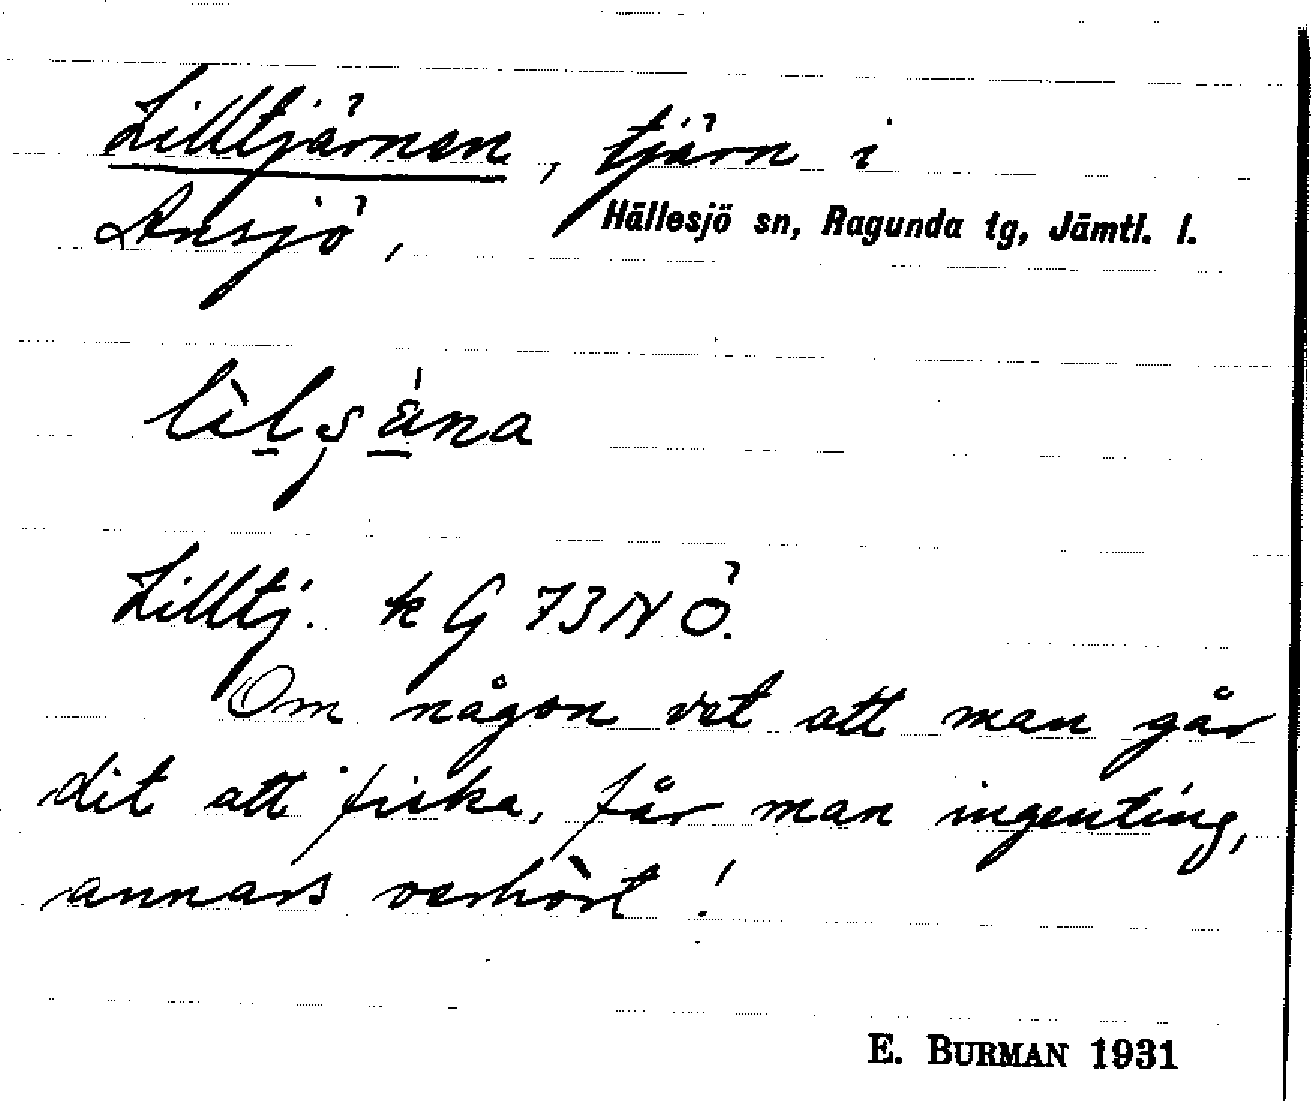 Lilltjärnen, tjärn i
Ansjö, Hällesjö sn, Ragunda tg, Jämtl. l.
Lilltj. k G 73 NÖ.
Om någon vet att man går
dit att fiska, får man ingenting,
annars oerhört!
E. BURMAN 1931